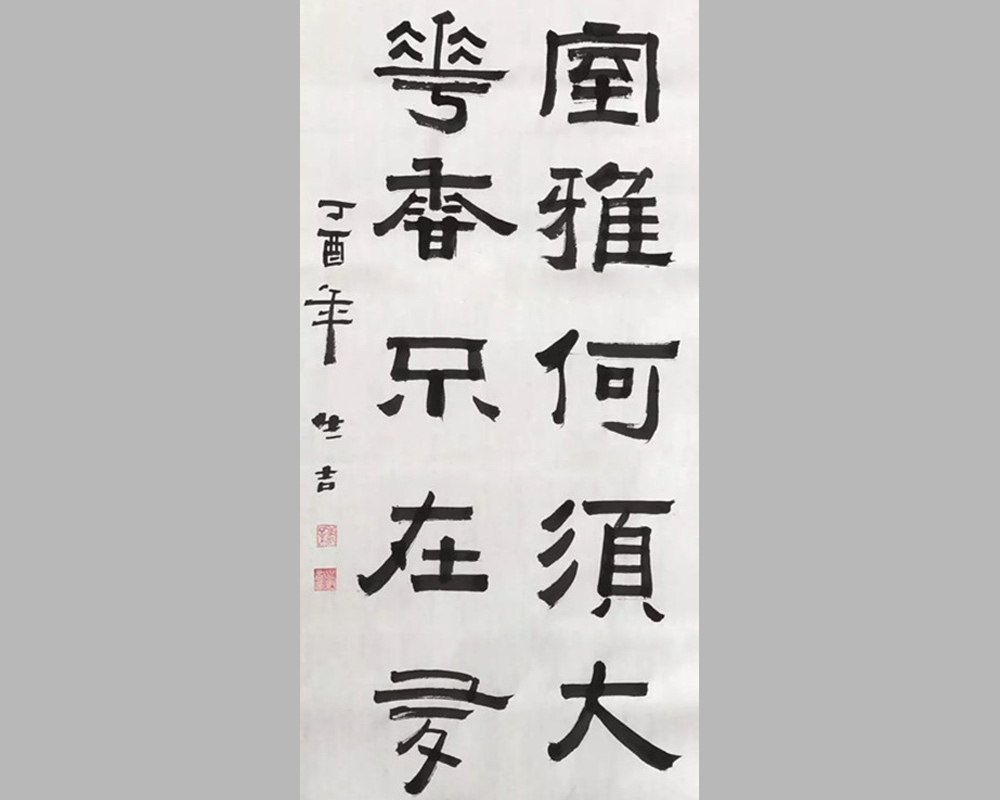 室雅何須大
華香不在多
丁酉年